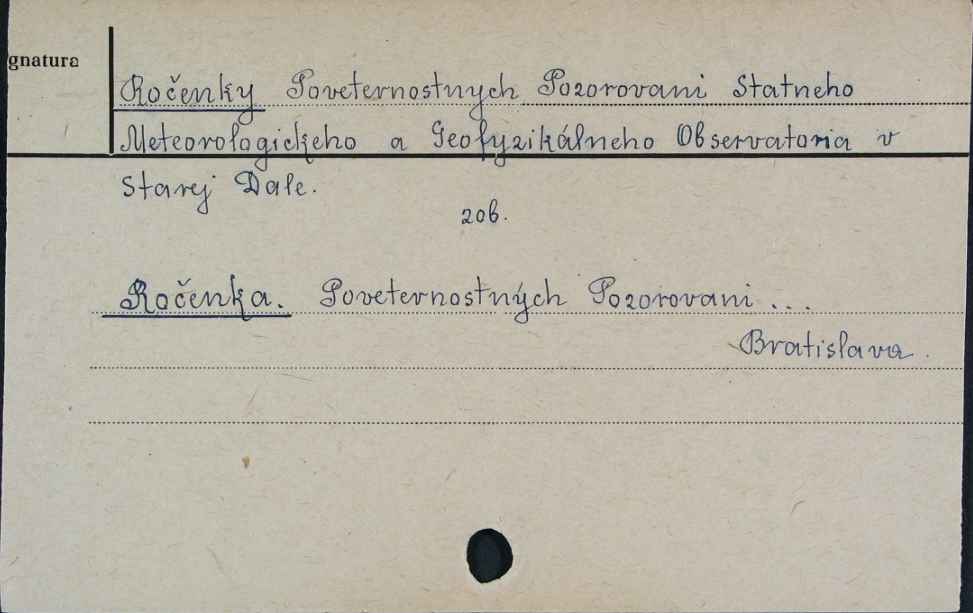 gnatura
Ročenky Poveternostnych Pozorovani Statneho
Meteorologickeho a Geofyzikálneho Observatoria v
Starej Dale.
206.
Ročenka. Poveternostných Pozorovani ...
Bratislava.